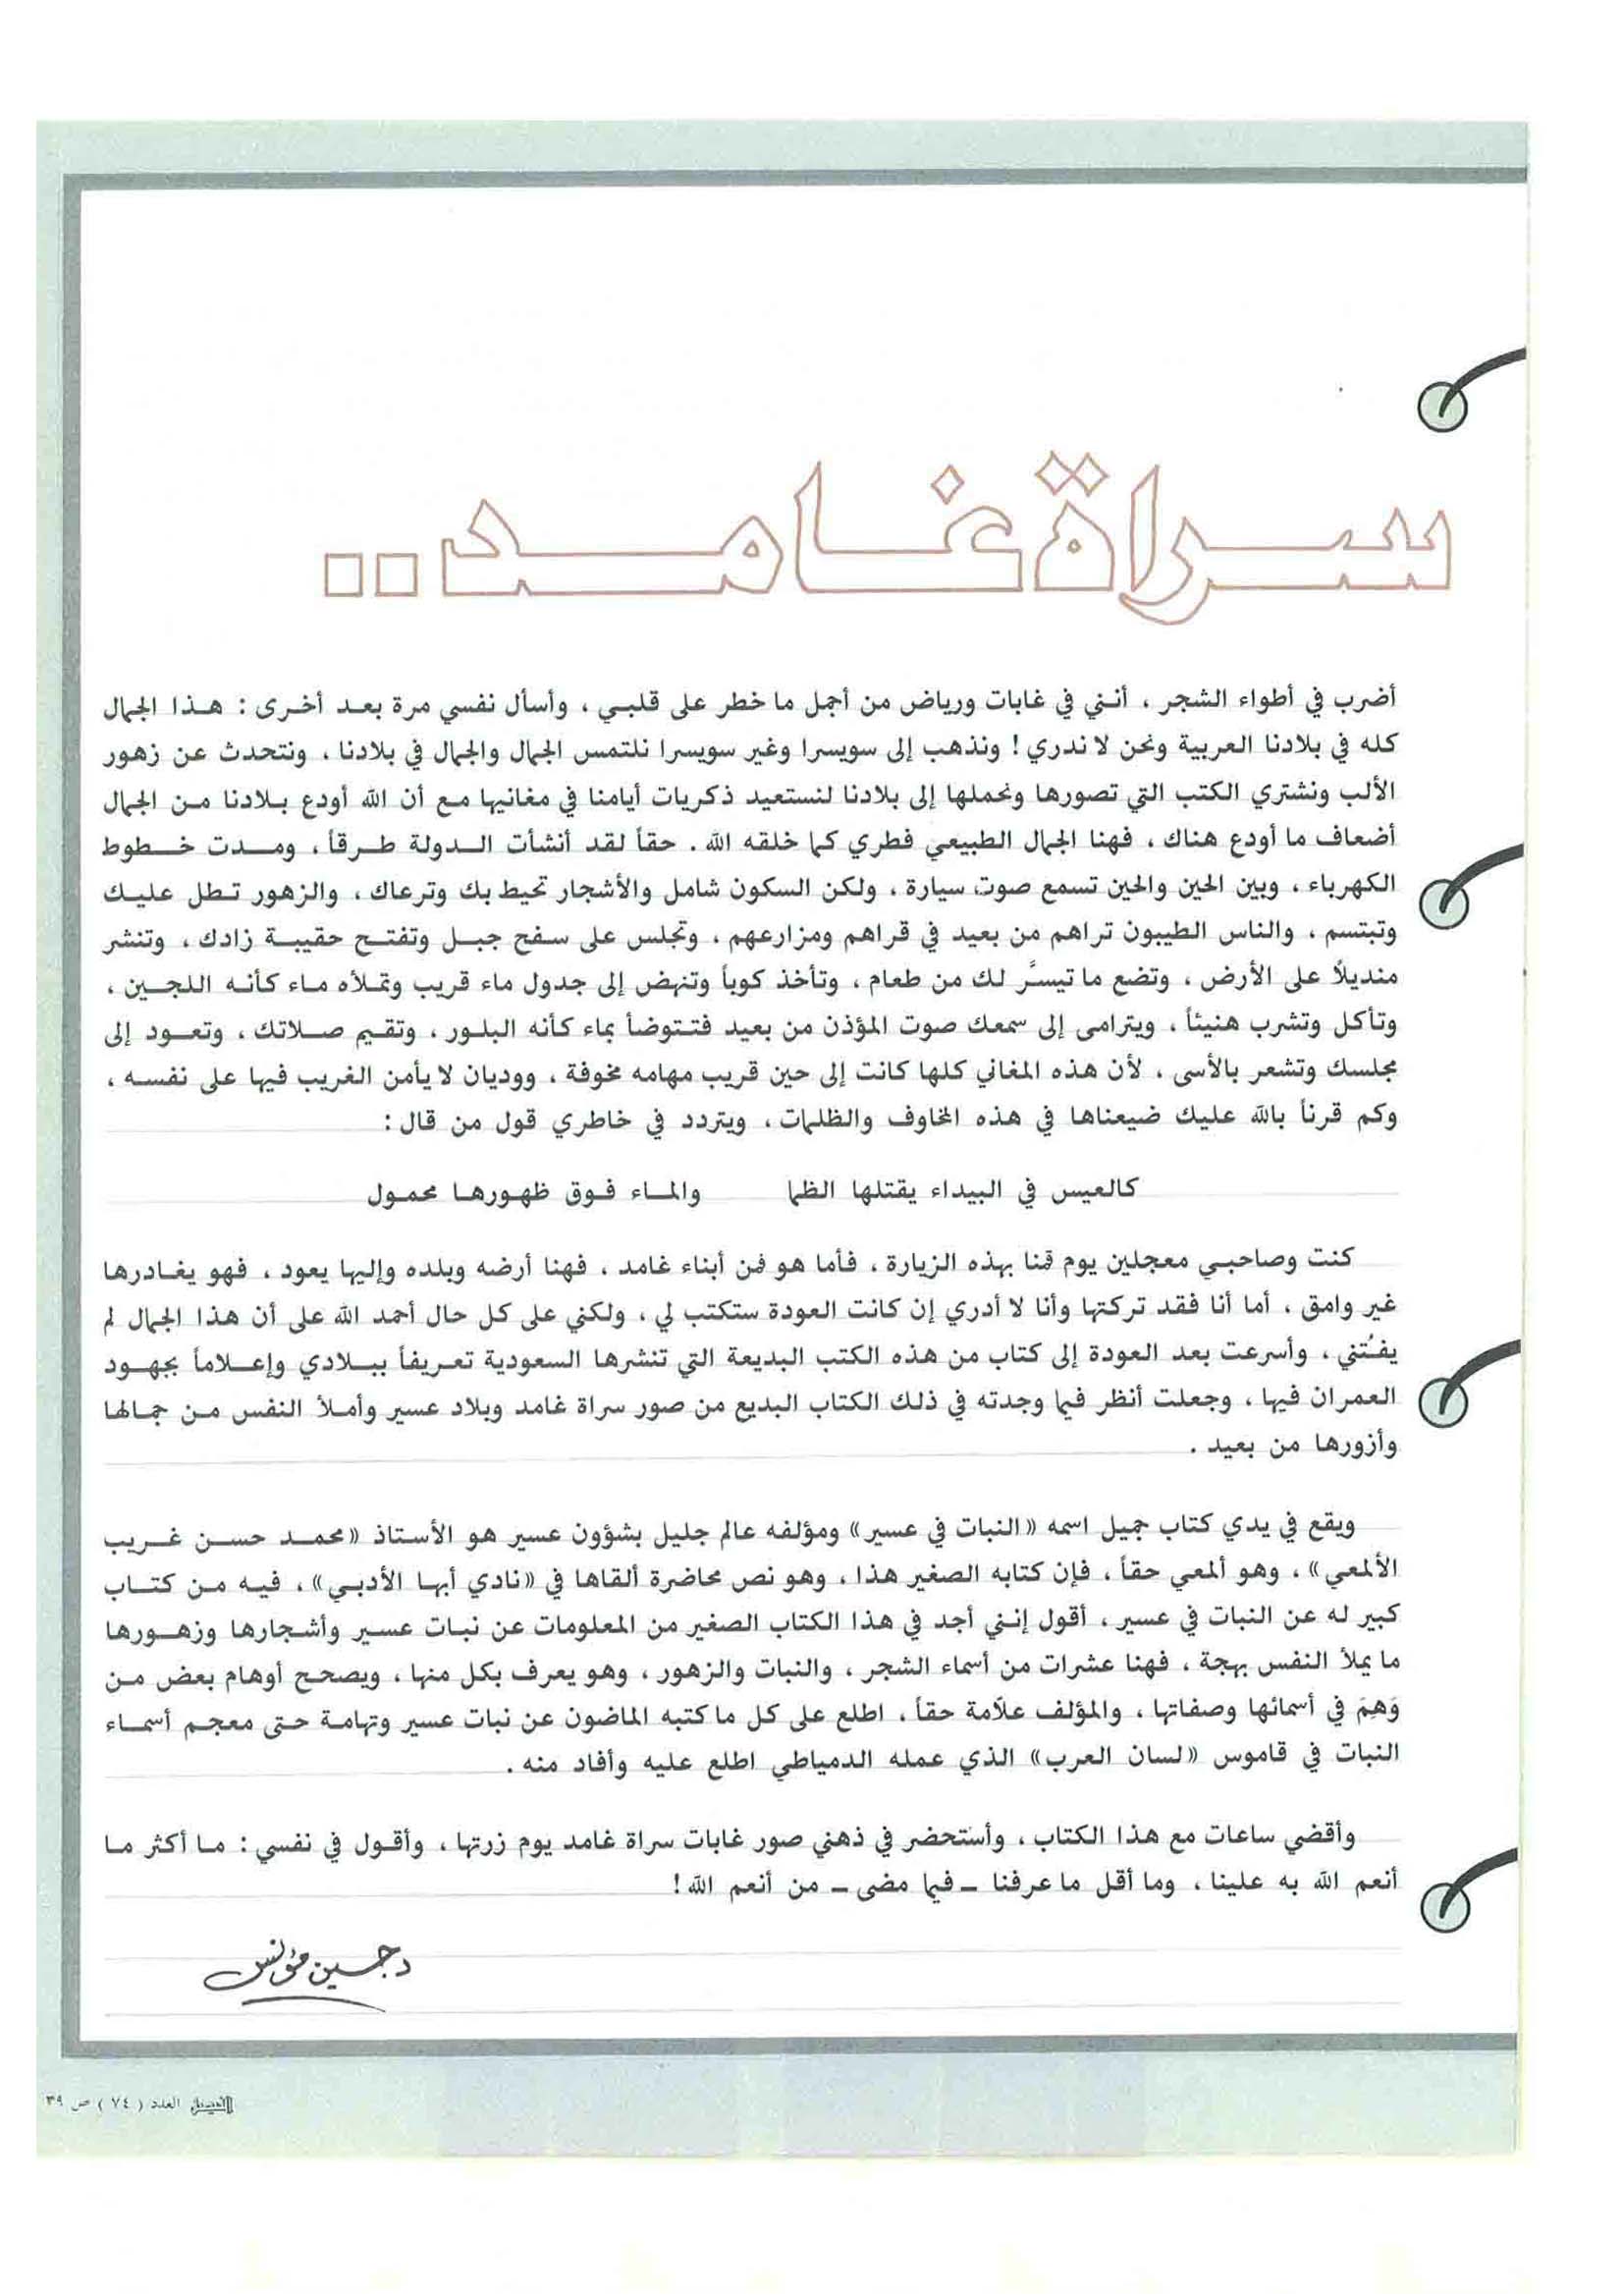 سراة غامد..
أضرب في أطواء الشجر ، أنني في غابات ورياض من أجمل ما خطر على قلبي ، وأسأل نفسي مرة بعد أخرى : هذا الجمال
كله في بلادنا العربية ونحن لا ندري ! ونذهب إلى سويسرا وغير سويسرا نلتمس الجمال والجمال في بلادنا ، ونتحدث عن زهور
الألب ونشتري الكتب التي تصورها ونحملها إلى بلادنا لنستعيد ذكريات أيامنا في مغانيها مع أن الله أودع بلادنا من الجمال
أضعاف ما أودع هناك ، فهنا الجمال الطبيعي فطري كما خلقه الله . حقاً لقد أنشأت الدولة طرقاً ، ومدت خطوط
الكهرباء ، وبين الحين والحين تسمع صوت سيارة ، ولكن السكون شامل والأشجار تحيط بك وترعاك ، والزهور تطل عليك
وتبتسم ، والناس الطيبون تراهم من بعيد في قراهم ومزارعهم ، وتجلس على سفح جبل وتفتح حقيبة زادك ، وتنشر
منديلاً على الأرض ، وتضع ما تيسَّر لك من طعام ، وتأخذ كوباً وتنهض إلى جدول ماء قريب وتملأه ماء كأنه اللجين ،
وتأكل وتشرب هنيئاً ، ويترامى إلى سمعك صوت المؤذن من بعيد فتتوضأ بماء كأنه البلور ، وتقيم صلاتك ، وتعود إلى
مجلسك وتشعر بالأسى ، لأن هذه المغاني كلها كانت إلى حين قريب مهامه مخوفة ، ووديان لا يأمن الغريب فيها على نفسه ،
وكم قرناً بالله عليك ضيعناها في هذه المخاوف والظلمات ، ويتردد في خاطري قول من قال :
كالعيس في البيداء يقتلها الظما والماء فوق ظهورها محمول
كنت وصاحبي معجلين يوم قمنا بهذه الزيارة ، فأما هو فمن أبناء غامد ، فهنا أرضه وبلده وإليها يعود ، فهو يغادرها
غير وامق ، أما أنا فقد تركتها وأنا لا أدري إن كانت العودة ستكتب لي ، ولكني على كل حال أحمد الله على أن هذا الجمال لم
يفُتني ، وأسرعت بعد العودة إلى كتاب من هذه الكتب البديعة التي تنشرها السعودية تعريفاً ببلادي وإعلاماً بجهود
العمران فيها ، وجعلت أنظر فيما وجدته في ذلك الكتاب البديع من صور سراة غامد وبلاد عسير وأملأ النفس من جمالها
وأزورها من بعيد .
ويقع في يدي كتاب جميل اسمه « النبات في عسير » ومؤلفه عالم جليل بشؤون عسير هو الأستاذ « محمد حسن غريب
الألمعي » ، وهو ألمعي حقاً ، فإن كتابه الصغير هذا ، وهو نص محاضرة ألقاها في « نادي أبها الأدبي » ، فيه من كتاب
كبير له عن النبات في عسير ، أقول إنني أجد في هذا الكتاب الصغير من المعلومات عن نبات عسير وأشجارها وزهورها
ما يملأ النفس بهجة ، فهنا عشرات من أسماء الشجر ، والنبات والزهور ، وهو يعرف بكل منها ، ويصحح أوهام بعض من
وَهِمَ في أسمائها وصفاتها ، والمؤلف علاّمة حقاً ، اطلع على كل ما كتبه الماضون عن نبات عسير وتهامة حتى معجم أسماء
النبات في قاموس « لسان العرب » الذي عمله الدمياطي اطلع عليه وأفاد منه .
وأقضي ساعات مع هذا الكتاب ، وأستحضر في ذهني صور غابات سراة غامد يوم زرتها ، وأقول في نفسي : ما أكثر ما
أنعم الله به علينا ، وما أقل ما عرفنا – فيما مضى – من أنعم الله !
د حسين مؤنس
الفيصل العدد ( ٧٤ ) ص ٣٩